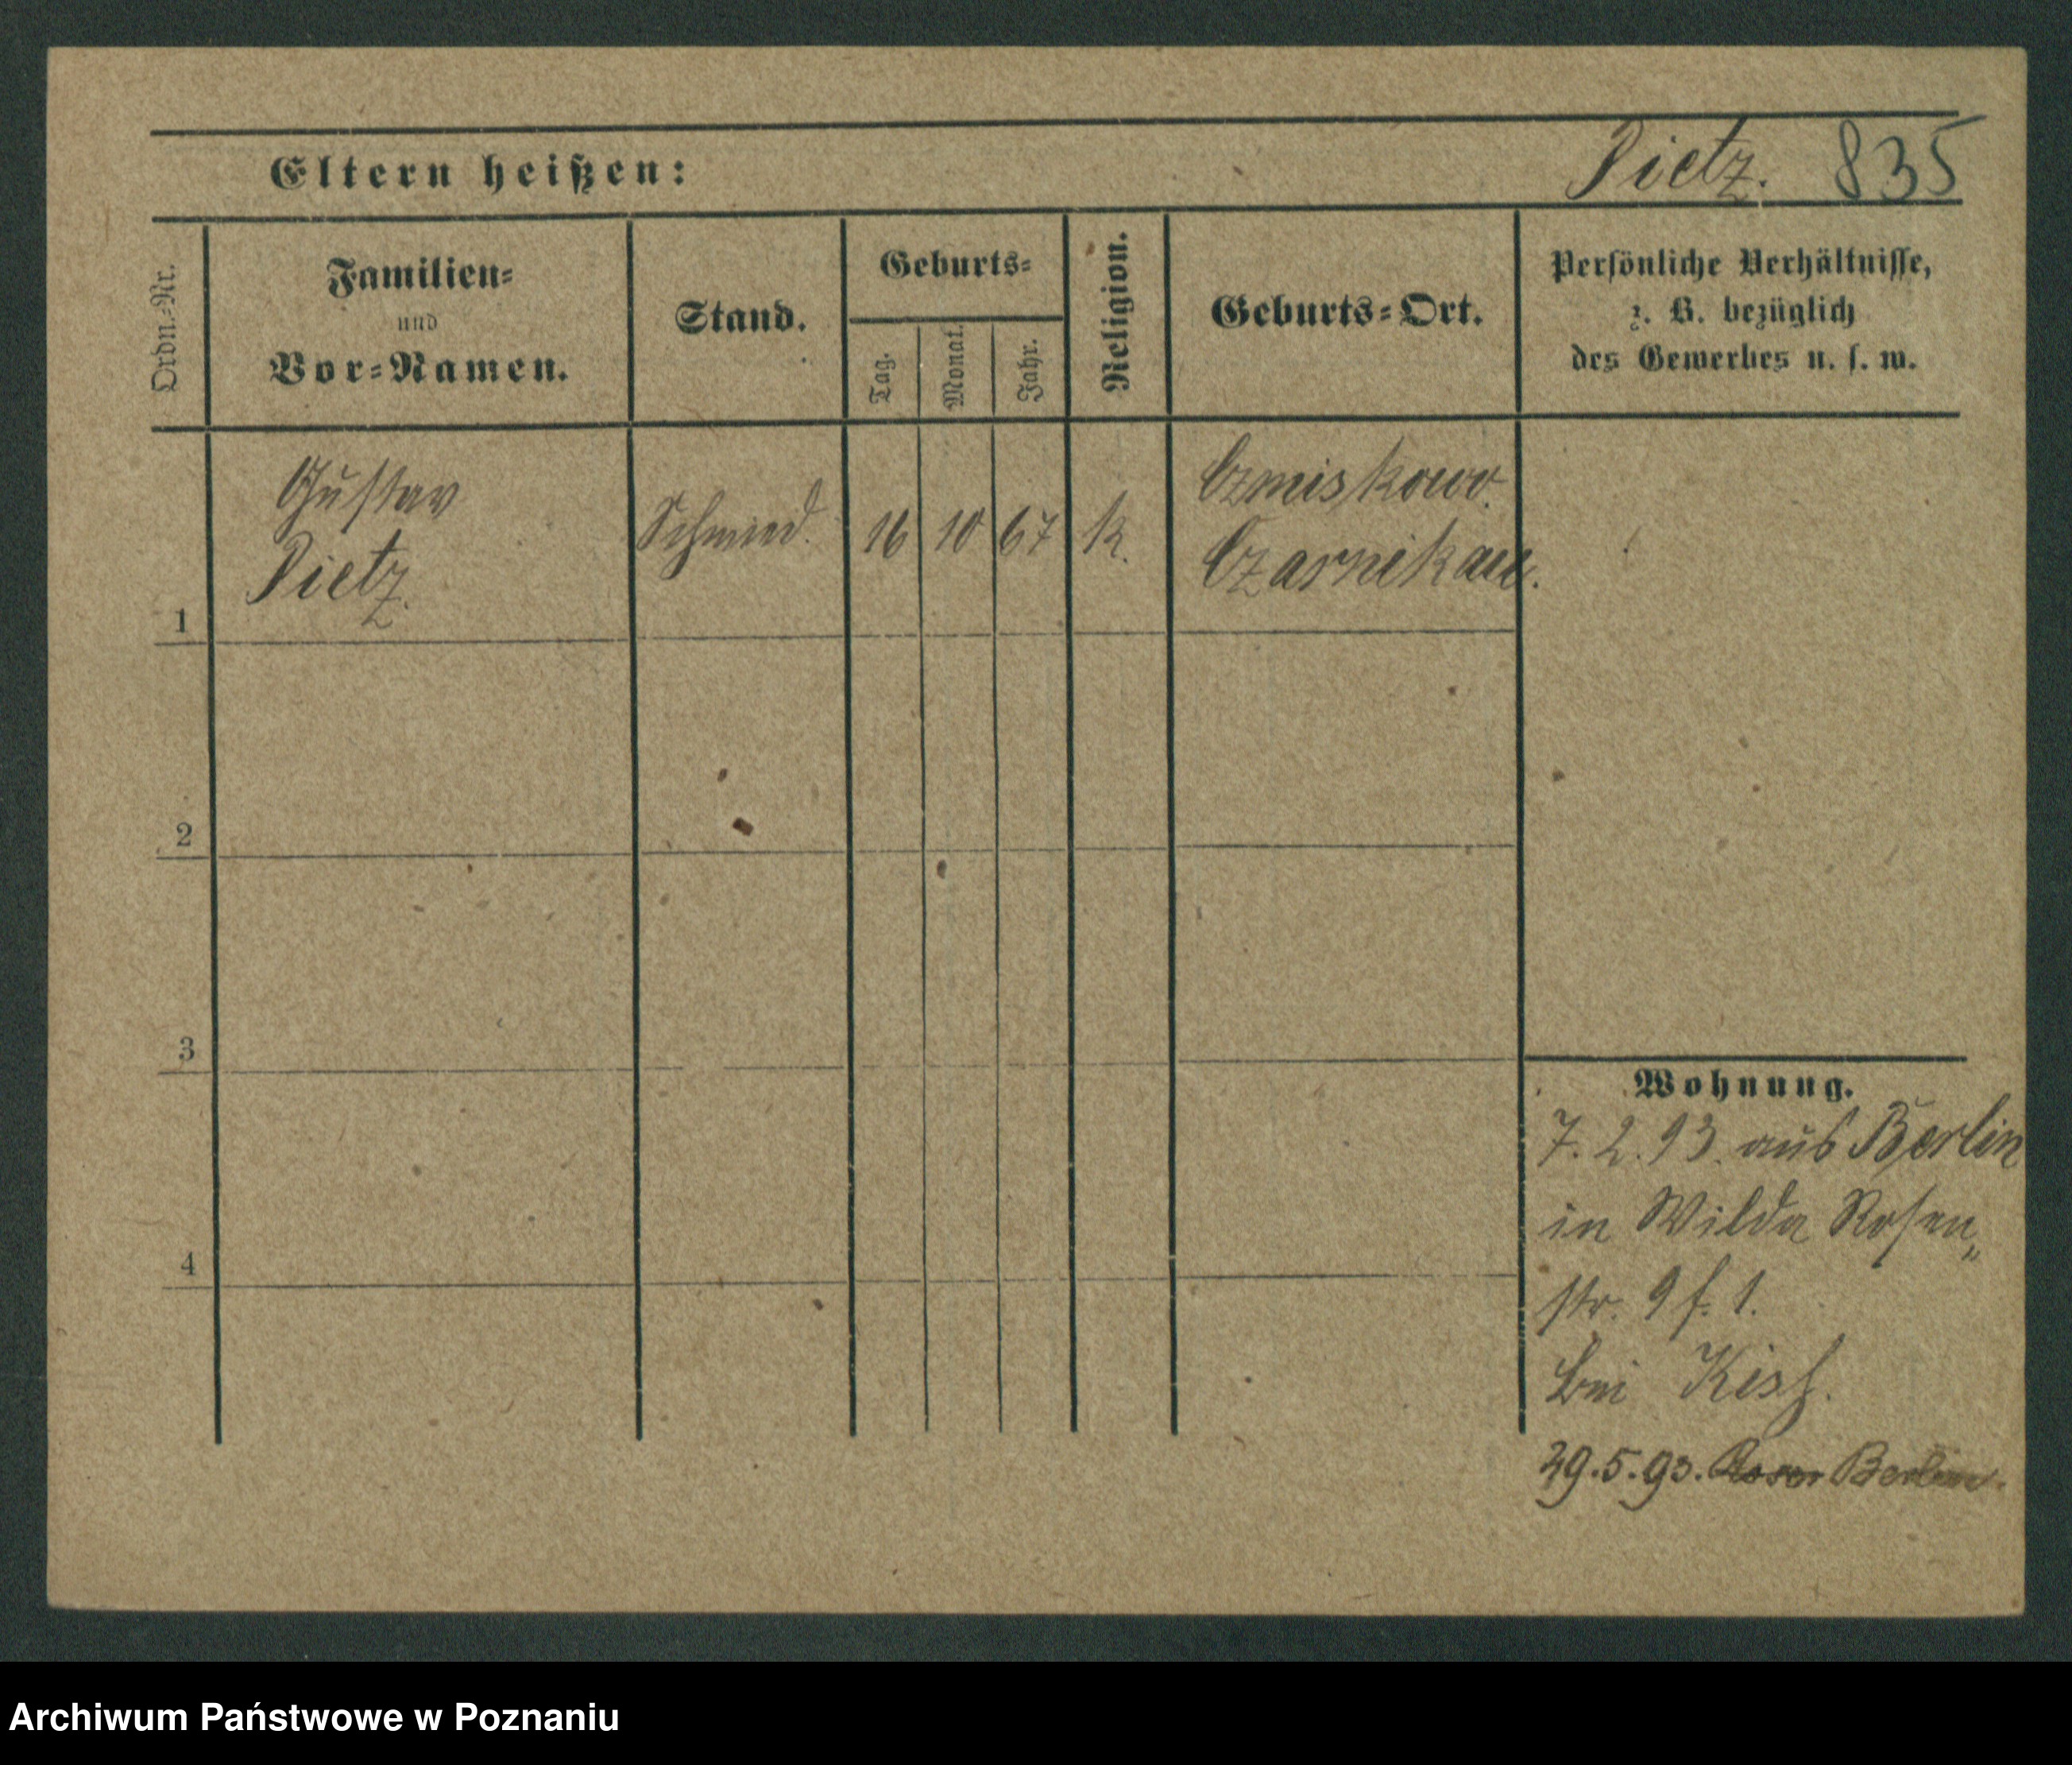 Eltern heißen:
Pietz. 835
Ordn.-Nr.
Familien-
und
Vor-Namen.
Stand.
Geburts-
Tag.
Monat.
Jahr.
Religion.
Geburts-Ort.
Persönliche Verhältnisse,
z. B. bezüglich
des Gewerbes u. s. w.
1
Gustav
Pietz.
Schmied.
16
10
67
k.
Czmiskowo.
Czarnikau.
2
3
4
Wohnung.
7. 2. 93. aus Berlin
in Wilda Rosen„
str. 9 f. 1.
bei
29.5.93. Berlin
Archiwum Państwowe w Poznaniu